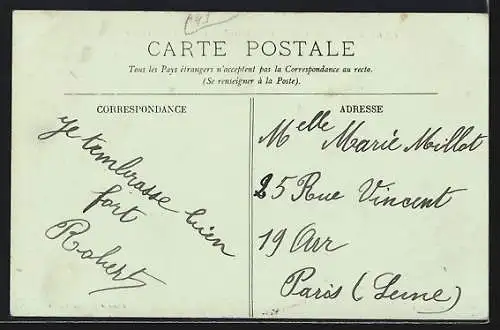 CARTE POSTALE
Tous les Pays étrangers n'acceptent pas la Correspondance au recto.
(Se renseigner à la Poste).
CORRESPONDANCE
Je tembrasse bien
fort
Robert
ADRESSE
Melle Marie Millot
25 Rue Vincent
19 Arr
Paris (Seine)